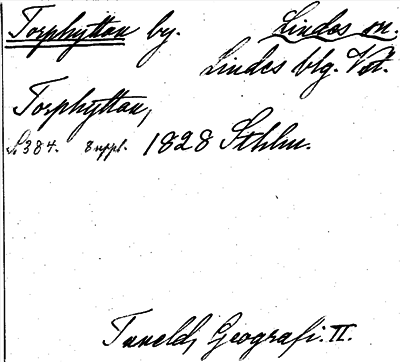 Torphyttan by. Lindes sn.
Lindes blg. Vstm.
Torphyttan,
S. 384. Suppl. 1828 Sthlm.
Tuneld, Geografi. II.